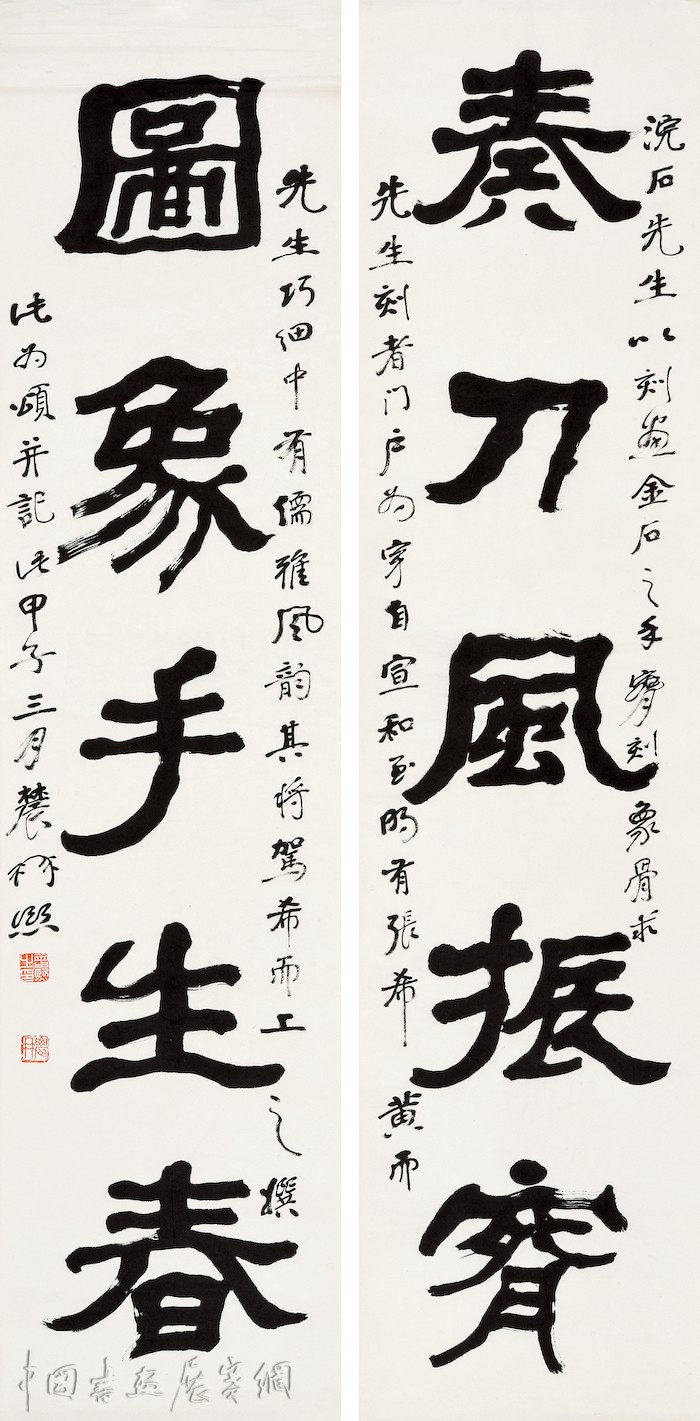 奏刀風振
浣石先生以刻畫金石之手刻象骨求
先生刻者门户为穿自宣和至明有張希黄而
圖象手生春
先生巧細中有儒雅風韵其將駕希而上之撰
此为頌并記时甲子三月農髯熙
中国書画展賽網